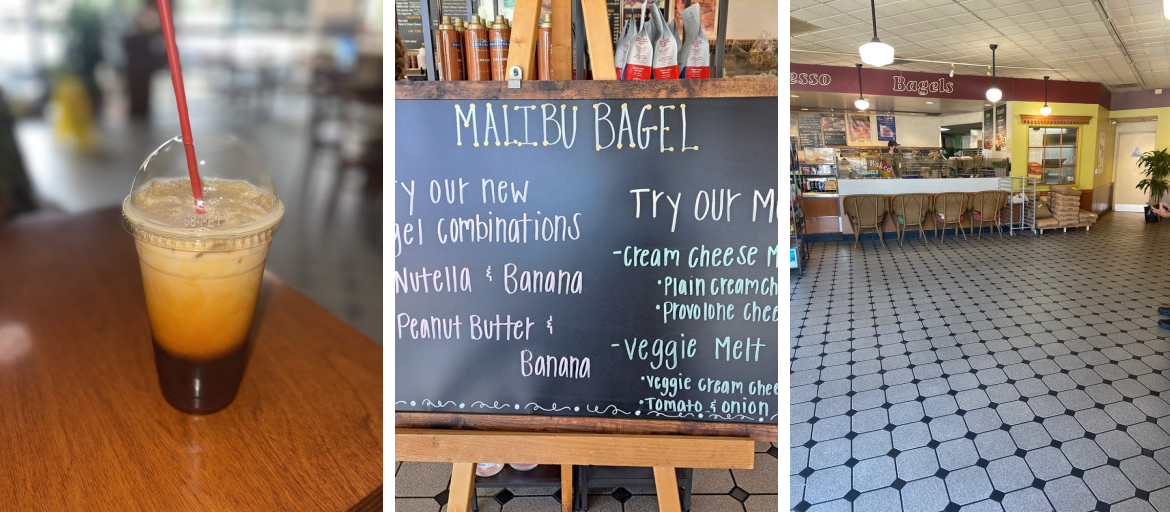 MALIBU BAGEL
y our new
gel combinations
Nutella & Banana
Peanut Butter &
Banana
Try our M
-cream cheese M
•Plain creamch
•Provolone chee
-veggie Melt
•veggie cream chee
•Tomato & onion
esso
Bagels